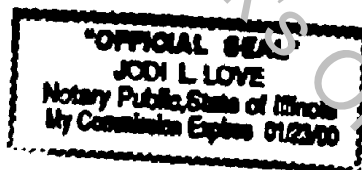 "OFFICIAL SEAL"
JODI L. LOVE
Notary Public, State of Illinois
My Commission Expires 01/23/00